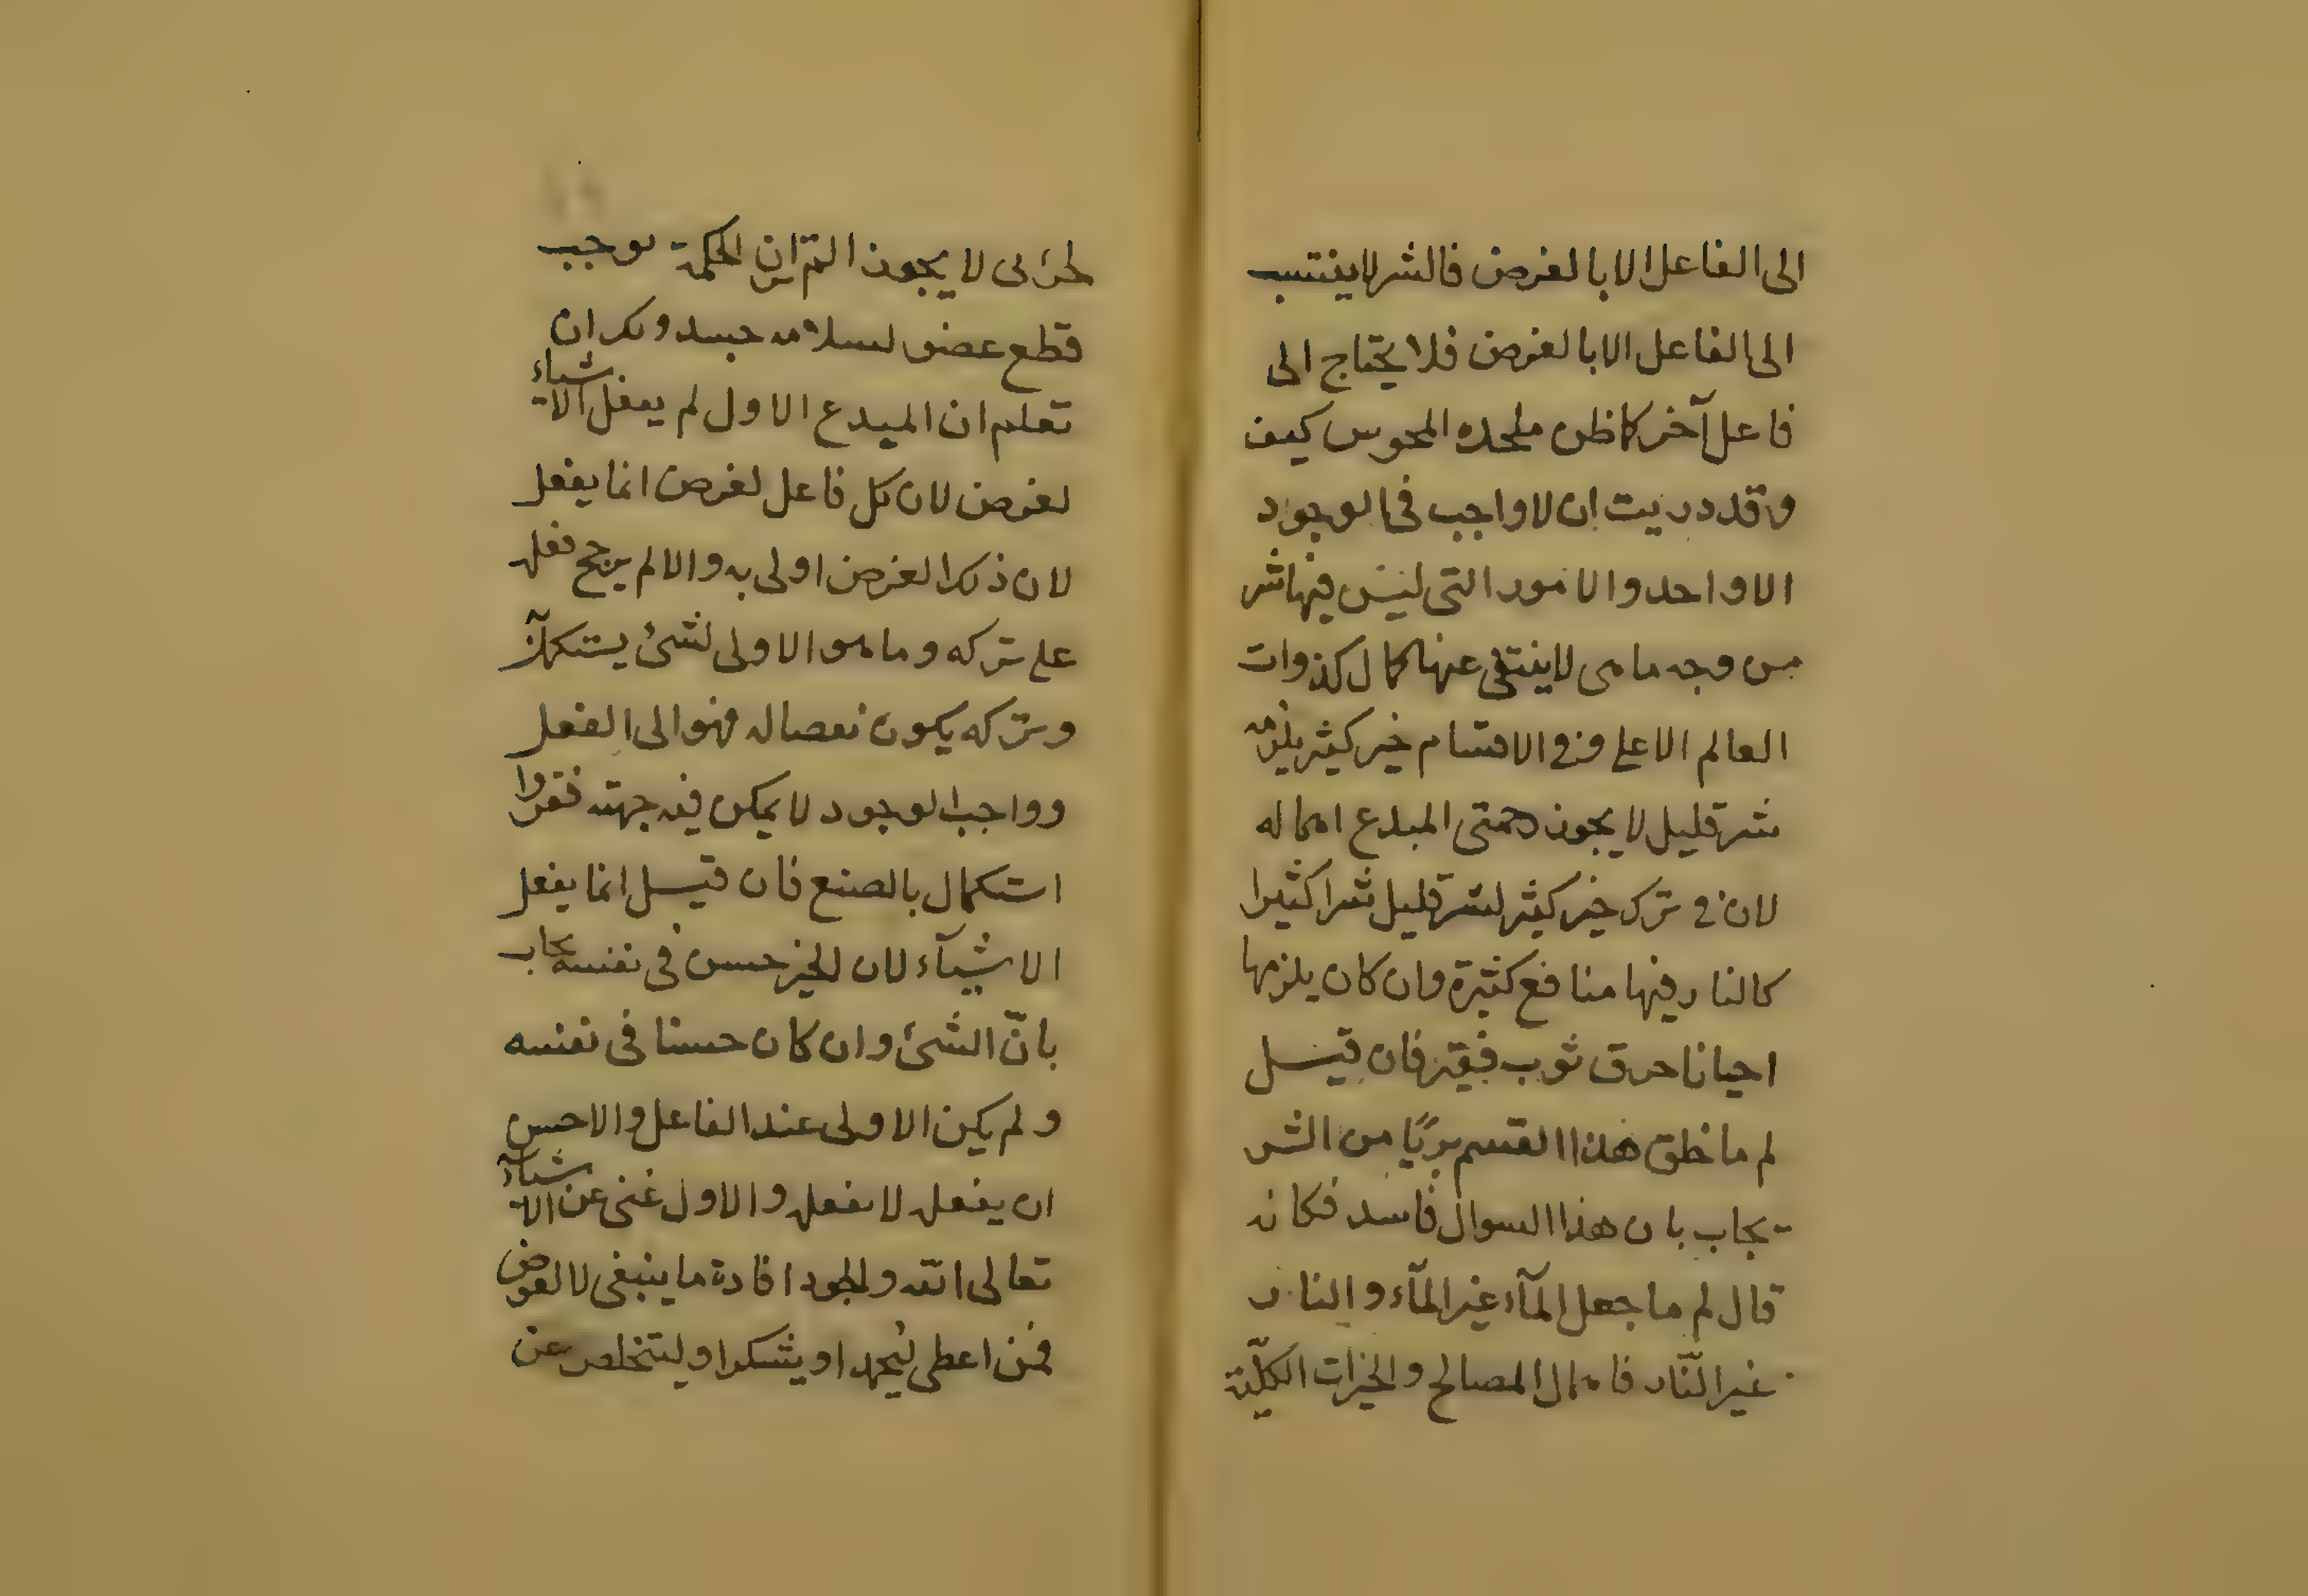 الى الفاعل الا بالغرض فالشر لا ينتسب
الى الفاعل الا بالغرض فلا يحتاج الى
فاعل آخر كما ظن ملحده المجوس كيف
وقد دريت ان لا واجب فى الوجود
الا واحد والامور التى ليس فيها شر
من وجه ما هى لا ينتفى عنها كمال كذوات
العالم الاعلى وفى الاقسام خير كثير يلزمه
شر قليل لا يجوز من المبدع اهماله
لان فى ترك خير كثير لشر قليل شرا كثيرا
كالنار فيها منافع كثيرة وان كان يلزمها
احيانا حرق ثوب فقير فان قيل
لم ما خلق هذا القسم بريًا من الشر
يجاب بان هذا السوال فاسد فكانه
قال لم ما جعل المآء غير المآء والنار
غير النّار فاهمال المصالح والخيرات الكلّية
لجزئى لا يجوز الم تر ان الحكمة توجب
قطع عضو لسلامه جسد ولكن ان
تعلم ان المبدع الاول لم يفعل الاشياء
لغرض لان كل فاعل لغرض انما يفعل
لان ذلك الغرض اولى به والا لم يرجح فعله
على تركه وما هو الاولى لشئ يستكمل
وتركه يكون نقصا له فهو الى الفعل
وواجب الوجود لا يمكن فيه جهته فقر ولا
استكمال بالصنع فان قيل انما يفعل
الاشيآء لان الخير حسن فى نفسه يجاب
بانّ الشئ وان كان حسنا فى نفسه
ولم يكن الاولى عند الفاعل والاحسن
ان يفعله لا يفعله والاول غنى عن الاشيآء
تعالى الله والجود افادة ما ينبغى لا لعوض
فمن اعطى ليُحمد او يشكر او ليتخلص عن